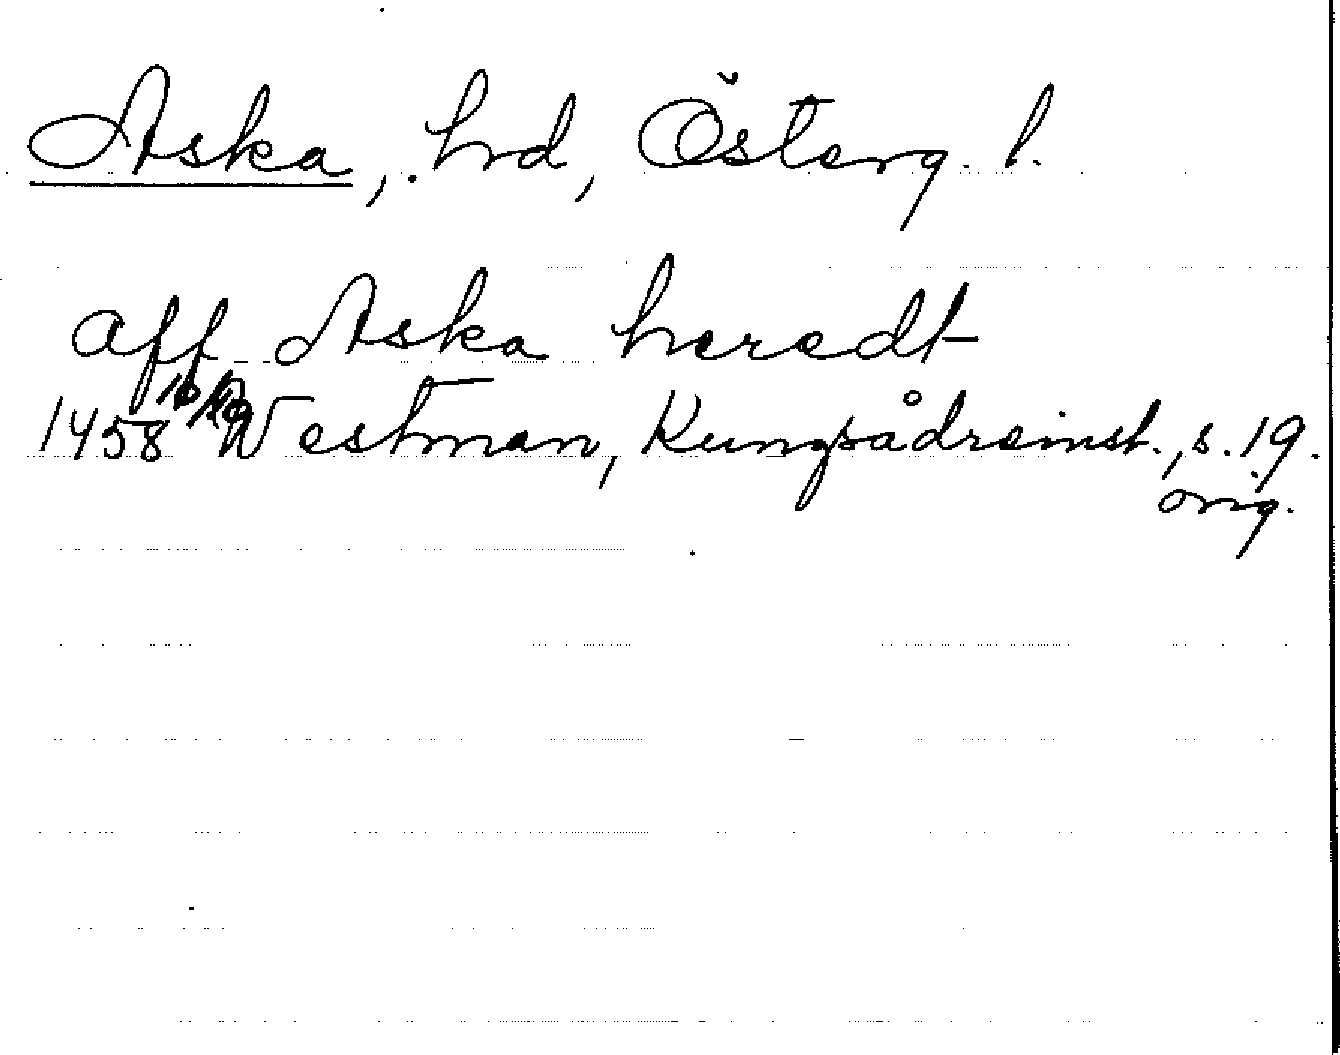 Aska, hrd, Österg. l.
aff Aska heredt
1458 Westman, Kungsådreinst., s. 19.
orig.